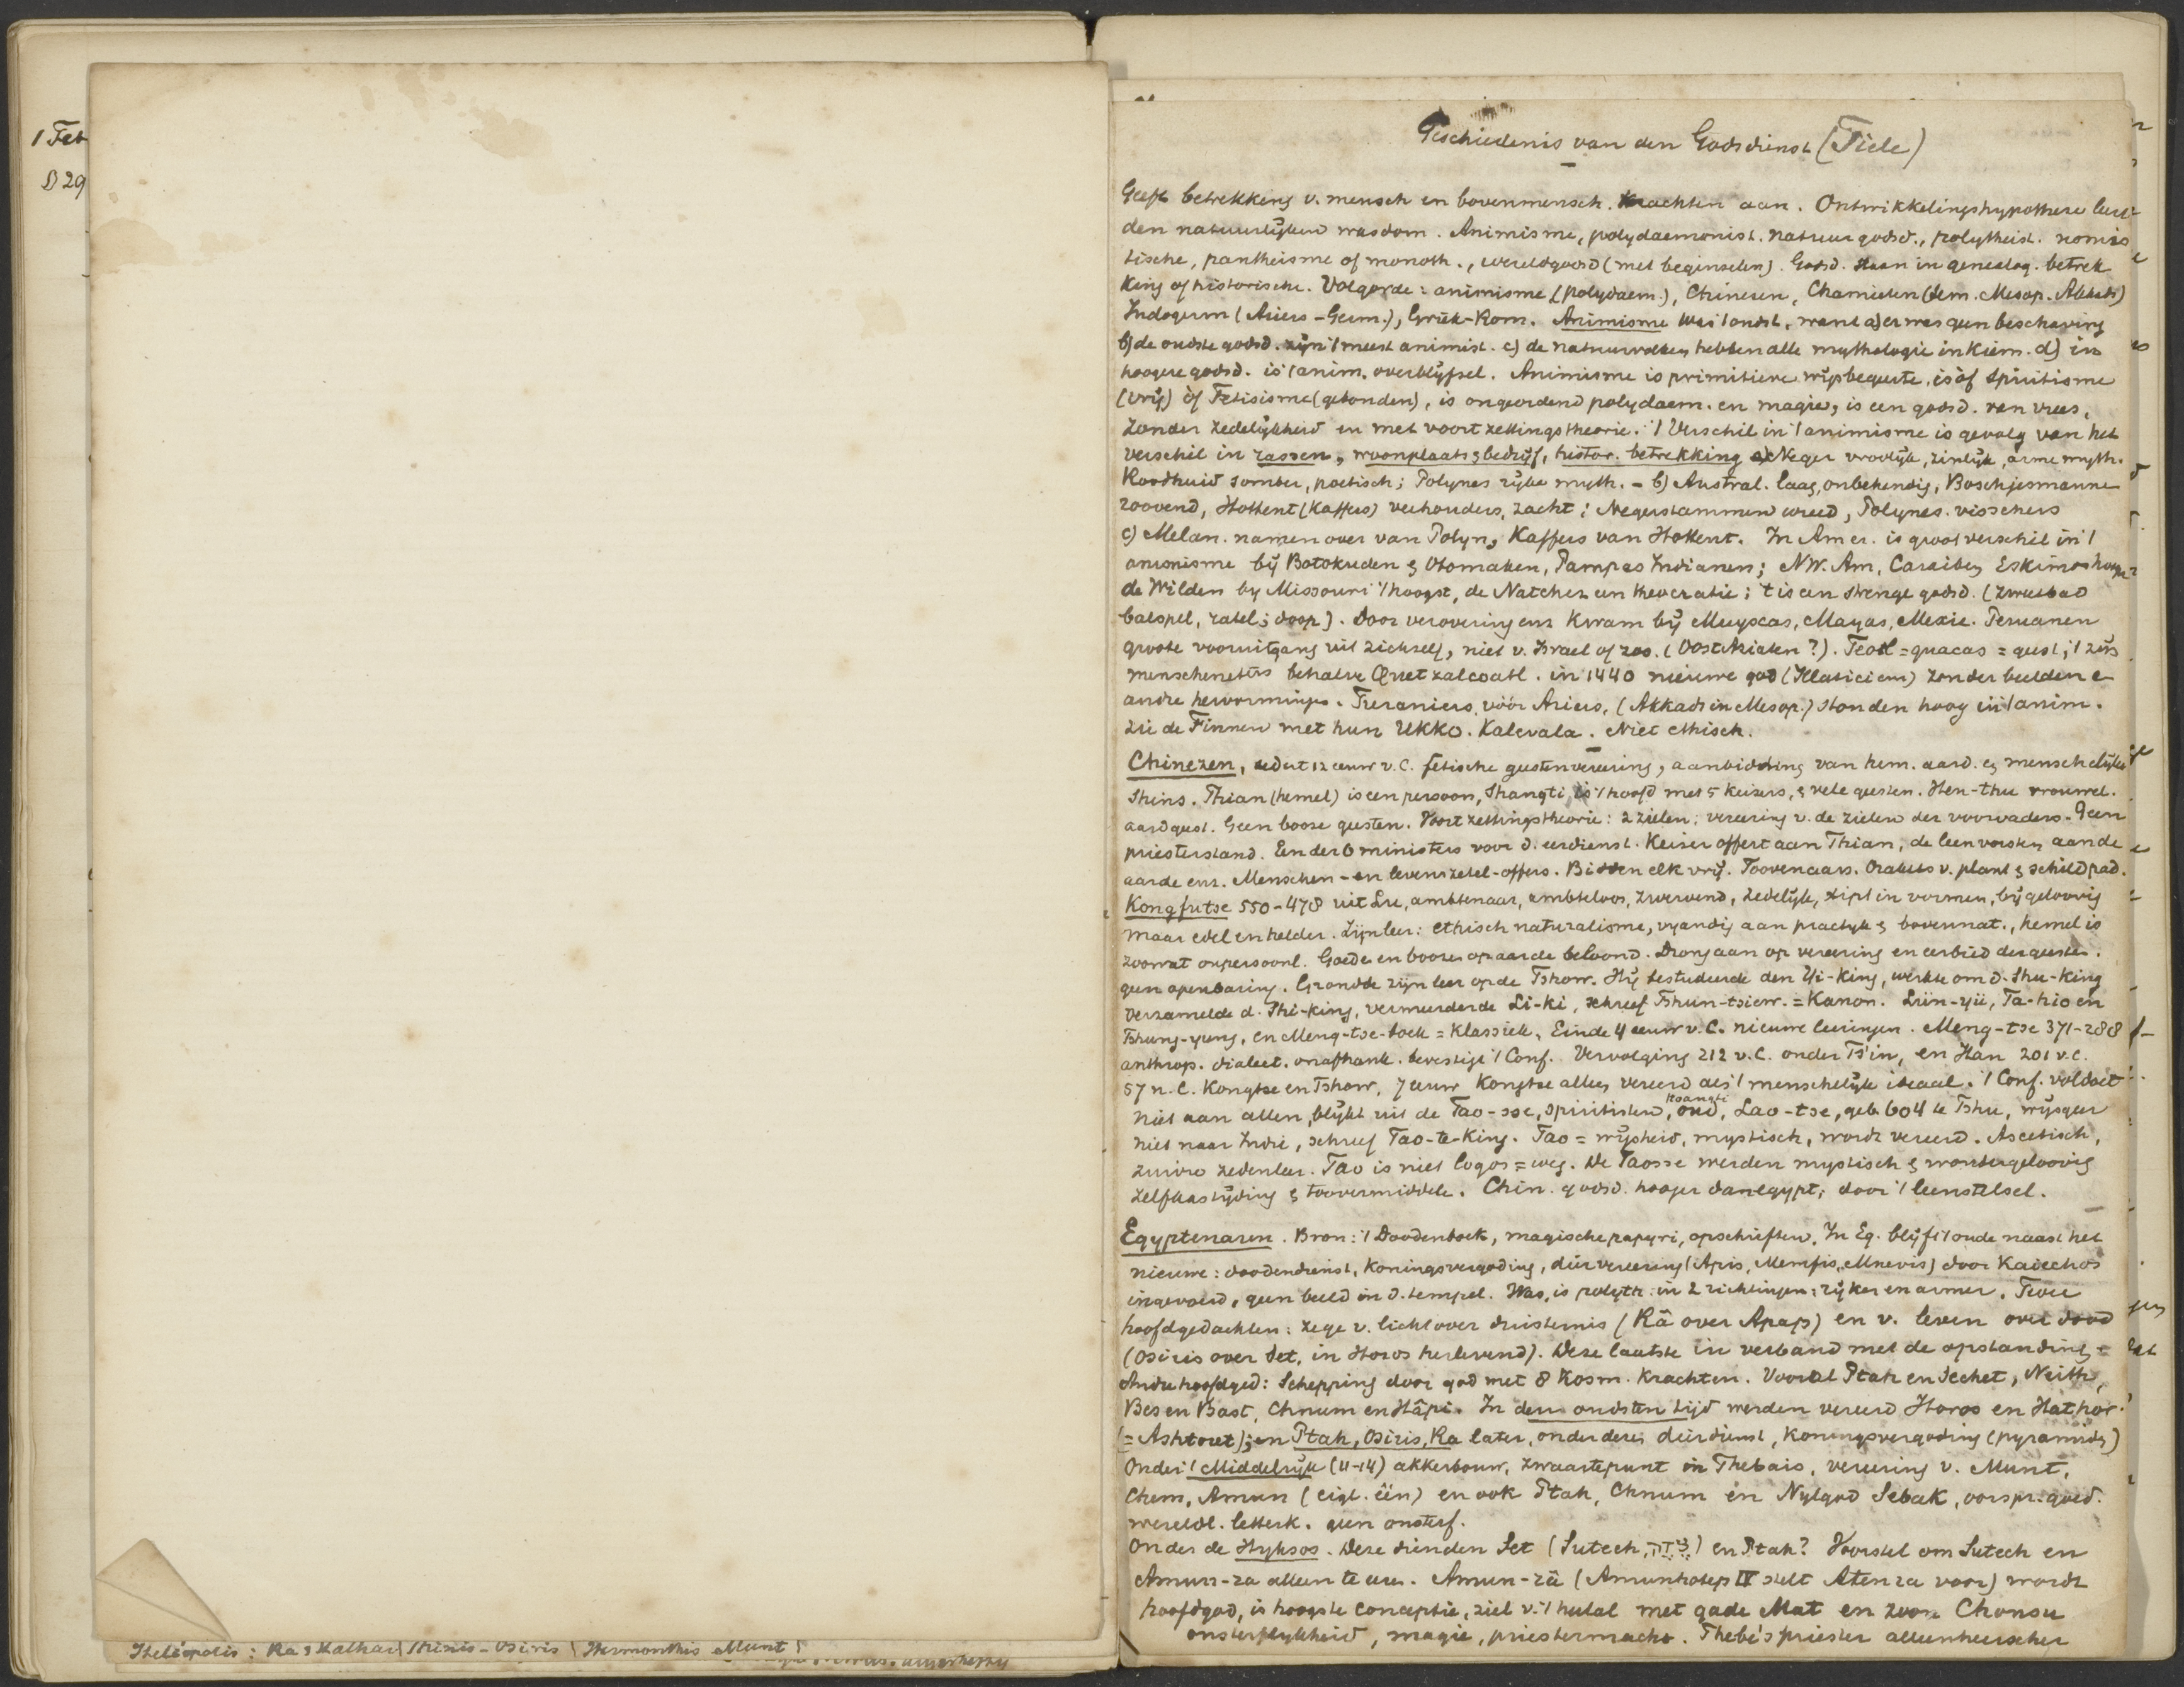 1 Feb
B 29
Heliopolis: Ra & Hathar | Thinis - Osiris | Hermonthis Munt |
Geschiedenis van den Godsdienst (Tiele)
Geeft betrekking v. mensch en bovenmensch. Krachten aan. Ontwikkelingshypothese leert
den natuurlijken wasdom. Animisme, polydaemonist. natuurgodsd., polytheist. nomis
tische, pantheisme of monoth., wereldgodsd (met beginselen). Godsd. staan in genealog. betrek
king of historische. Volgorde: animisme (polydaem.), Chinezen, Chamieten (Sem. Mesop. Akkads)
Indogerm (Ariers - Germ.), Griek-Rom. Animisme was 't oudst, want a) er was geen beschaving
b) de oudste godsd. zijn 't meest animist. c) de natuurvolken hebben alle mythologie in kiem. d) in
hoogere godsd. is 't anim. overblijfsel. Animisme is primitieve wijsbegeerte, is òf Spiritisme
(vrij) òf Fetisisme (gebonden), is ongeordend polydaem. en magie, is een godsd. van vrees,
zonder zedelijkheid en met voortzettingstheorie. 't Verschil in 't animisme is gevolg van het
verschil in rassen, woonplaats & bedrijf, histor. betrekking a) Neger vroolijk, zinlijk, arme myth.
Roodhuid somber, poetisch; Polynes rijke myth. - b) Austral. laag, onbehendig, Boschjesmannen
roovend, Hottent (Kaffers) veehouders, zacht; Negerstammen wreed, Polynes. visschers
c) Melan. namen over van Polyn, Kaffers van Hottent. In Amer. is groot verschil in 't
animisme bij Botokuden & Otomaken, Pampas Indianen; NW. Am, Caraiben Eskimos hooger
de Wilden by Missouri 't hoogst, de Natchez een theocratie; 't is een strenge godsd. (zweetbad
balspel, ratel; doop). Door verovering enz kwam bij Muyscas, Mayas, Mexic. Peruanen
groote vooruitgang uit zichzelf, niet v. Israel of zoo. (Oost Aziaten?). Teotl = guacas = geest; 't zijn
menscheneters behalve Quetzalcoatl. in 1440 nieuwe god (Tlaticiens) zonder beelden e
andre hervormingen. Turaniers, vóór Ariers, (Akkads in Mesop.) stonden hoog in 't anim.
zie de Finnen met hun Ukko. Kalevala. Niet ethisch.
Chinezen, sedert 12 eeuw v.C. fetische geestenvereering, aanbidding van hem. aard. en menschelijke
Shins. Thian (hemel) is een persoon, Shangti is 't hoofd met 5 keizers, & vele geesten. Hen-thu vrouwel.
aardgeest. Geen booze geesten. Voortzettingstheorie: 2 zielen; vereering v. de zielen der voorvaders. Geen
priesterstand. Een der 6 ministers voor d. eerdienst. Keizer offert aan Thian, de leenvorsten aan de
aarde enz. Menschen- en levenszetel-offers. Bidden elk vrij. Toovenaars. Orakels v. plant & schildpad.
Kongfutse 550-478 uit Lu, ambtenaar, ambteloos, zwervend, zedelijk, stipt in vormen, bijgeloovig
maar edel en helder. Zijn leer: ethisch naturalisme, vyandig aan practyk & bovennat., hemel is
zoowat onpersoonl. Goede en booze op aarde beloond. Drong aan op vereering en eerbied der geesten.
geen openbaring. Grondde zijn leer op de Tshow. Hij bestudeerde den Yi-king, werkte om d. Shu-king
verzamelde d. Shi-king, vermeerderde Li-ki, schreef Tshun-tsiew. = Kanon. Lün-yü, Ta-hio en
Tshung-yung, en Meng-tse-boek = klassiek. Einde 4 eeuw v.C. nieuwe leeringen. Meng-tse 371-288
anthrop. dialect. onafhank. bevestigt 't Conf. Vervolging 212 v.C. onder Ts'in, en Han 201 v.C.
57 n.C. Kongtse en Tshow, 7 eeuw Kongtse alleen vereerd als 't menschelijk ideaal. 't Conf. voldoet
niet aan allen, blijkt uit de Tao-sse, Spiritisten, oud, Hoangti Lao-tse, geb. 604 te Tshu, wijsgeer
niet naar Indie, schreef Tao-te-King. Tao = wijsheid, mystisch, wordt vereerd. Ascetisch,
zuivre zedenleer. Tao is niet logos = weg. De Taosse werden mystisch & wondergeloovig
zelfkastijding & toovermiddele. Chin. godsd. hooger dan egypt, door 't leenstelsel.
Egyptenaren. Bron: 't Doodenboek, magische papyri, opschriften. In Eg. blijft 't oude naast het
nieuwe: doodendienst, Koningsvergoding, diervereering (Apis, Memfis, Mnevis) door Kaiechos
ingevoerd, geen beeld in d. tempel. Was, is polyth. in 2 richtingen: rijker en armer. Twee
hoofdgedachten: zege v. licht over duisternis (Râ over Apap) en v. leven over dood
(Osiris over Set, in Horos herlevend). Deze laatste in verband met de opstanding =
Andre hoofdged: Schepping door god met 8 kosm. Krachten. Vooral Ptah en Sechet, Neith,
Bes en Bast, Chnum en Hâpi. In den oudsten tijd werden vereerd Horos en Hathor
(= Ashtoret); en Ptah, Osiris, Ra later, onder deze; dierdienst, Koningsvergoding (pyramids)
Onder 't Middelrijk (11-14) akkerbouw, zwaartepunt in Thebais, vereering v. Munt,
Chem, Amun (eigl. één) en ook Ptah, Chnum en Nylgod Sebak, oorspr. goed.
wereldl. letterk. geen onsterf.
Onder de Hyksos. Deze dienden Set (Sutech, ) en Ptah? Voorstel om Sutech en
Amun-ra alleen te eeren. Amun-râ (Amunhotep IV stelt Aten ra voor) wordt
hoofdgod, is hoogste conceptie, ziel v. 't heelal met gade Mat en zoon Chonsu
onsterflykheid, magie, priestermacht. Thebe's priester alleenheerscher